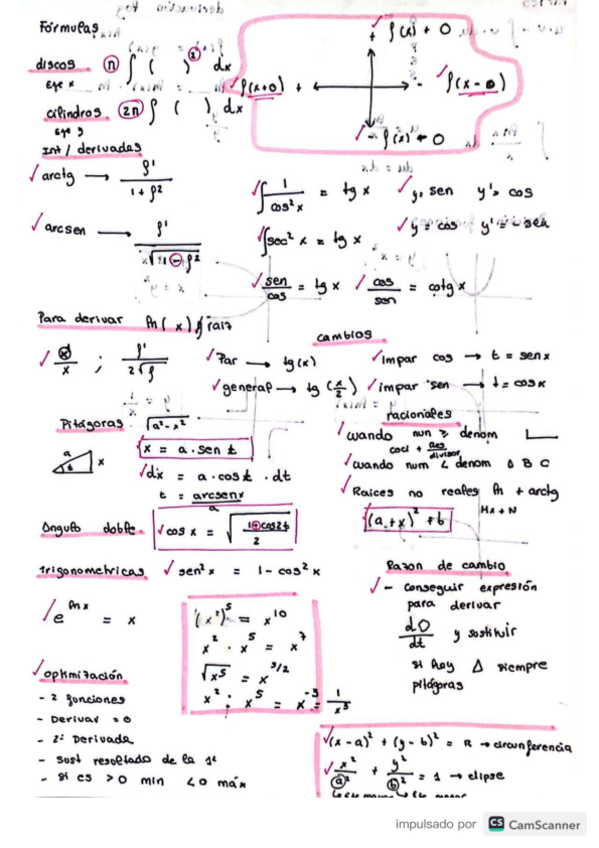 Fórmulas
discos π ∫ ( )² dx
eje x
cilindros 2π ∫ ( ) dx
eje y
+ f(x) + 0
f(x+0) +
- f(x-0)
- f(x) + 0
Int / derivadas
✓ arctg → f' / 1 + f²
✓ arcsen → f' / √1 - f²
✓ ∫ 1/cos² x = tg x
✓ y = sen y' = cos
✓ ∫ sec² x = tg x
✓ y = cos y' = - sen
✓ sen/cos = tg x
✓ cos/sen = cotg x
Para derivar ln(x) y raiz
✓ x'/x ; f' / 2√f
cambios
✓ Par → tg(x)
✓ impar cos → t = sen x
✓ general → tg (x/2)
✓ impar sen → t = cos x
Pitágoras √a² - x²
a
t
x
✓ x = a · sen t
✓ dx = a · cos t · dt
t = arcsen x/a
racionales
✓ cuando num ≥ denom
coci + Res/divisor
✓ cuando num < denom A B C
✓ Raíces no reales ln + arctg
Mx + N
(a + x)² + b
Angulo doble ✓ cos x = √ 1 + cos 2t / 2
trigonometricas ✓ sen² x = 1 - cos² x
✓ e^ln x = x
(x²)⁵ = x¹⁰
x² · x⁵ = x⁷
√x⁵ = x^5/2
x² : x⁵ = x⁻³ = 1/x³
Razon de cambio
✓ - conseguir expresión
para derivar
dO/dt y sustituir
si hay Δ siempre
pitágoras
✓ optimización
- 2 funciones
- Derivar = 0
- 2ª Derivada
- Sust resultado de la 1ª
- Si es > 0 min < 0 máx
✓ (x - a)² + (y - b)² = R → circunferencia
✓ x²/a² + y²/b² = 1 → elipse
impulsado por CS CamScanner